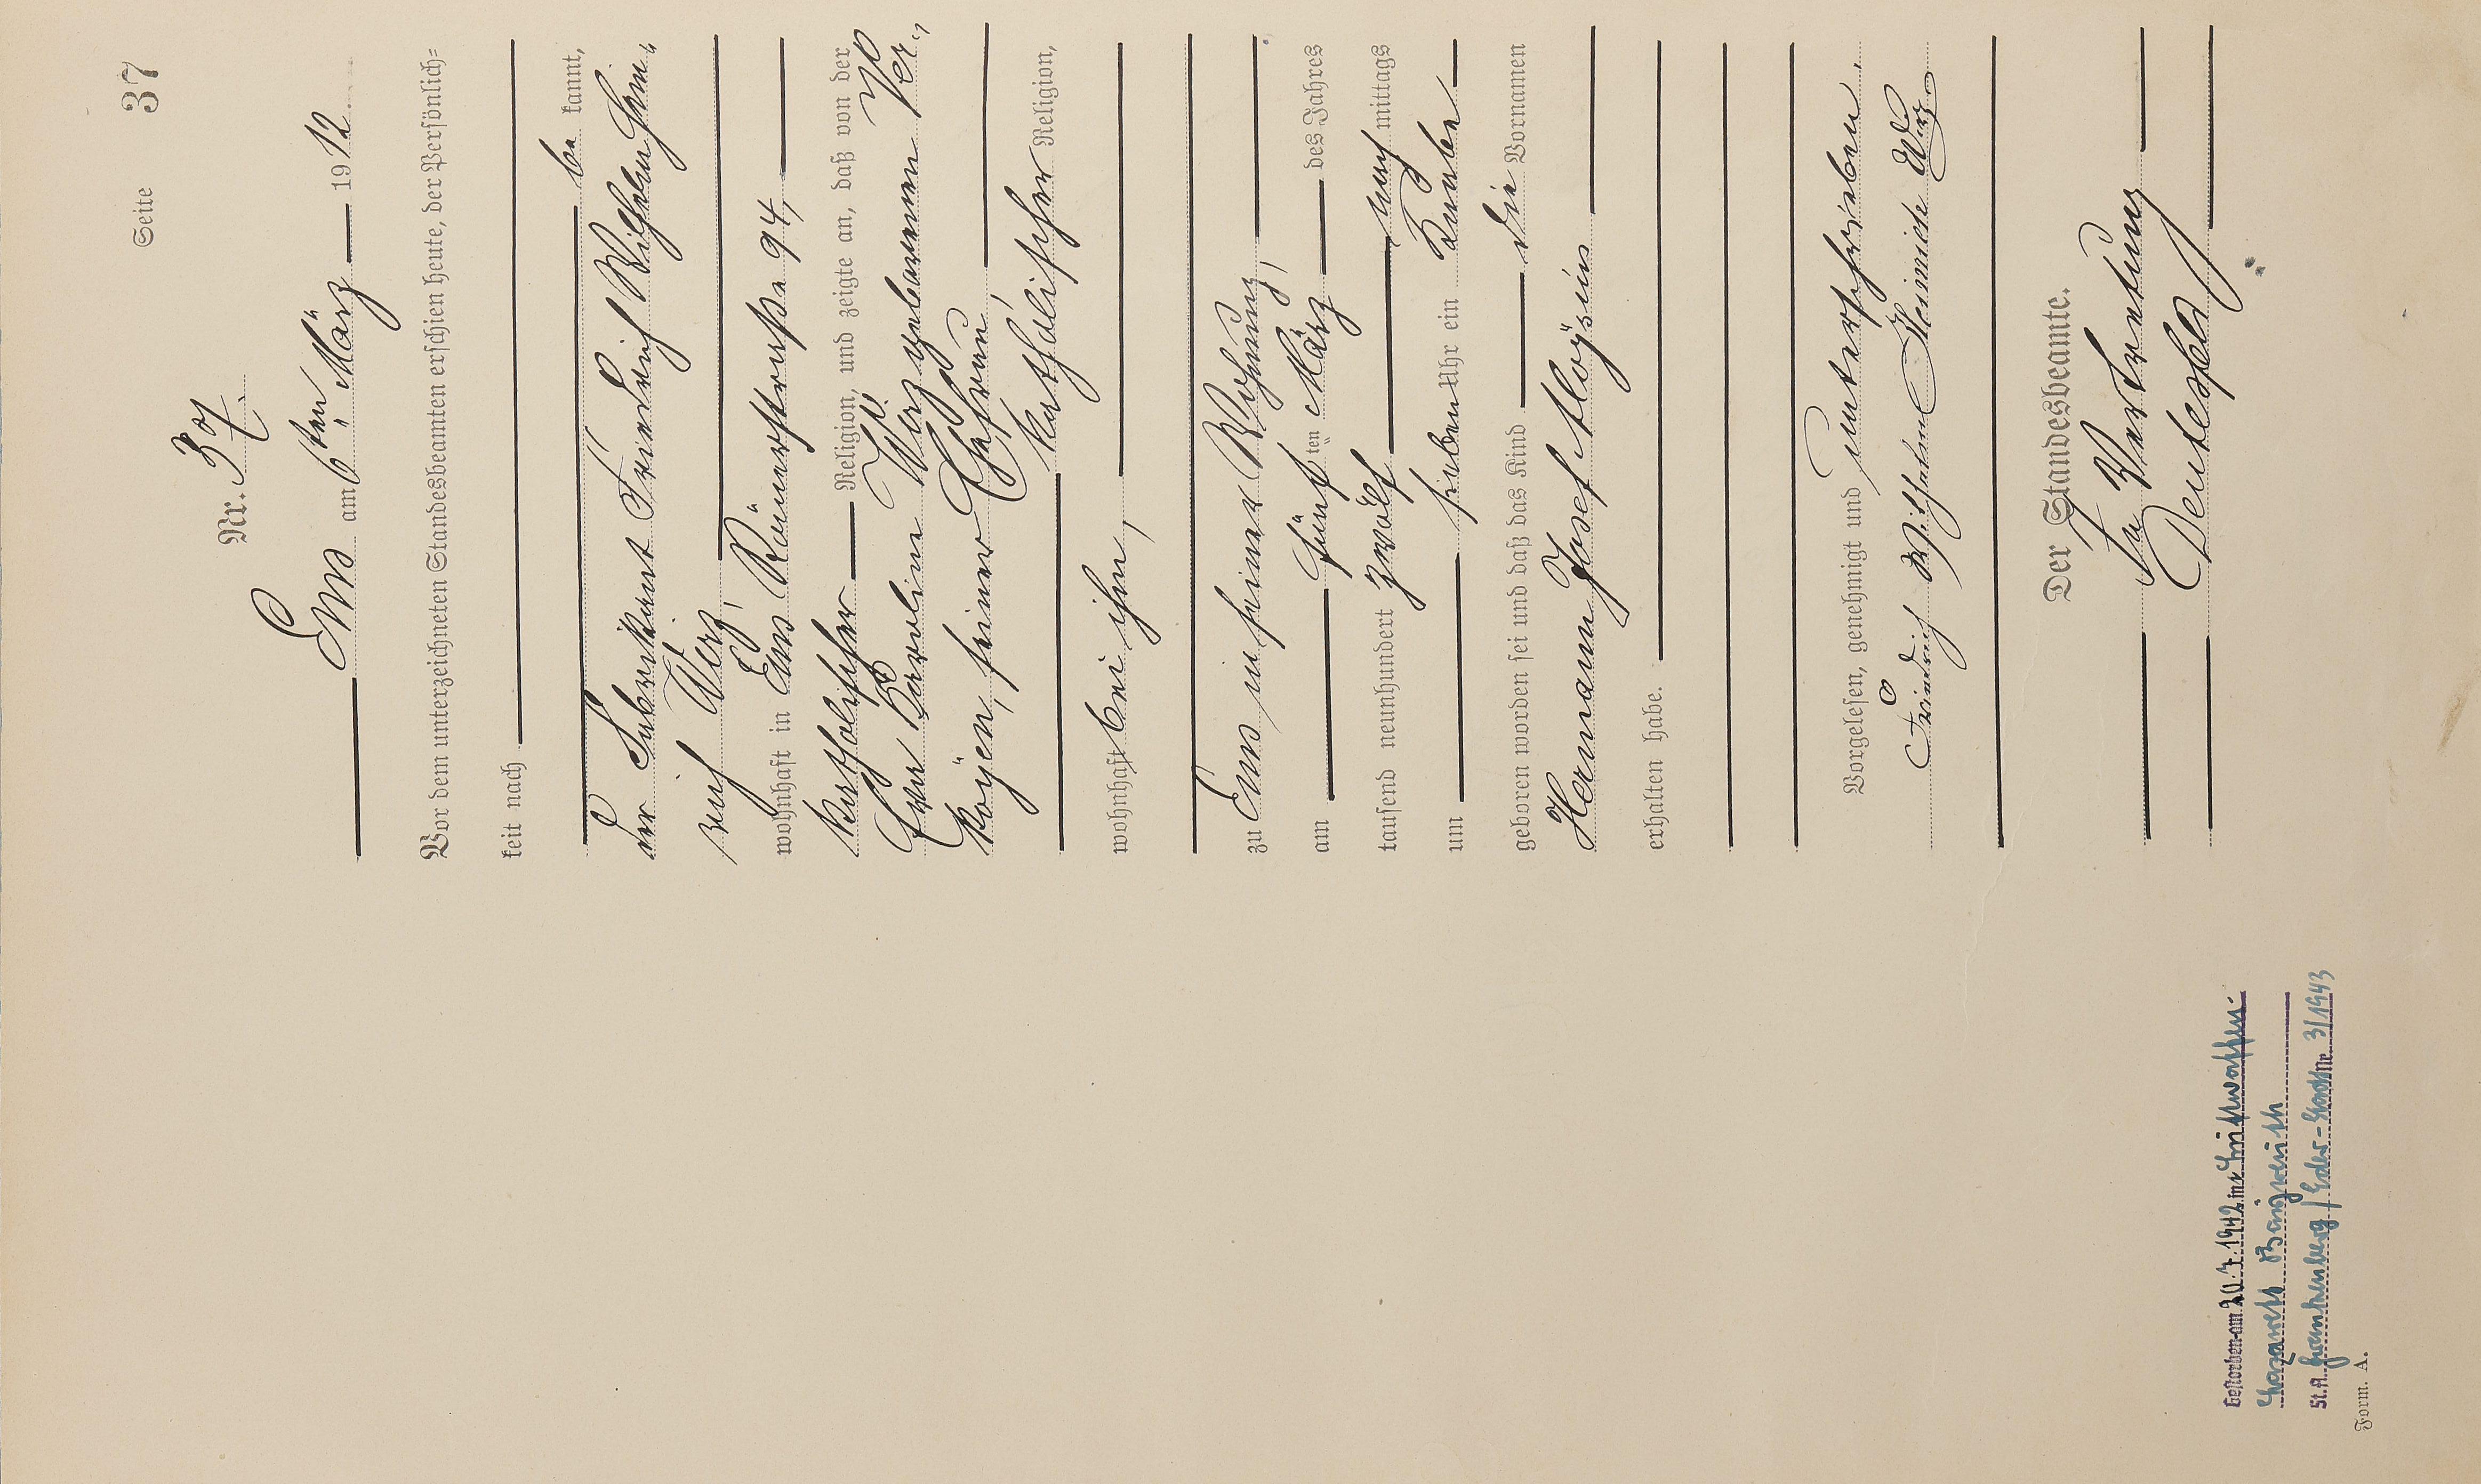 Seite 37
Nr. 37.
Ems am 6ten März 1912.
Vor dem unterzeichneten Standesbeamten erschien heute, der Persönlich=
keit nach
be kannt,
der Fabrikant Friedrich Wilhelm Hein„
rich Werz,
wohnhaft in Ems, Römerstraße 94,
katholischer Religion, und zeigte an, daß von der
Eva Karoline Werz geborenen Ver„
köyen, seiner Ehefrau,
katholischer Religion,
wohnhaft bei ihm,
zu Ems in seiner Wohnung,
am fünften März des Jahres
tausend neunhundert zwölf nach mittags
um sieben Uhr ein Knabe
geboren worden sei und daß das Kind die Vornamen
Hermann Josef Aloysius
erhalten habe.
Vorgelesen, genehmigt und unterschrieben.
Friedrich Wilhelm Heinrich Werz.
Der Standesbeamte.
In Vertretung
Gestorben am 20.7.1942 im Luftwaffen-
Lazarett
St.A. Frankenberg/Eder- Nr. 3/1943
Form. A.